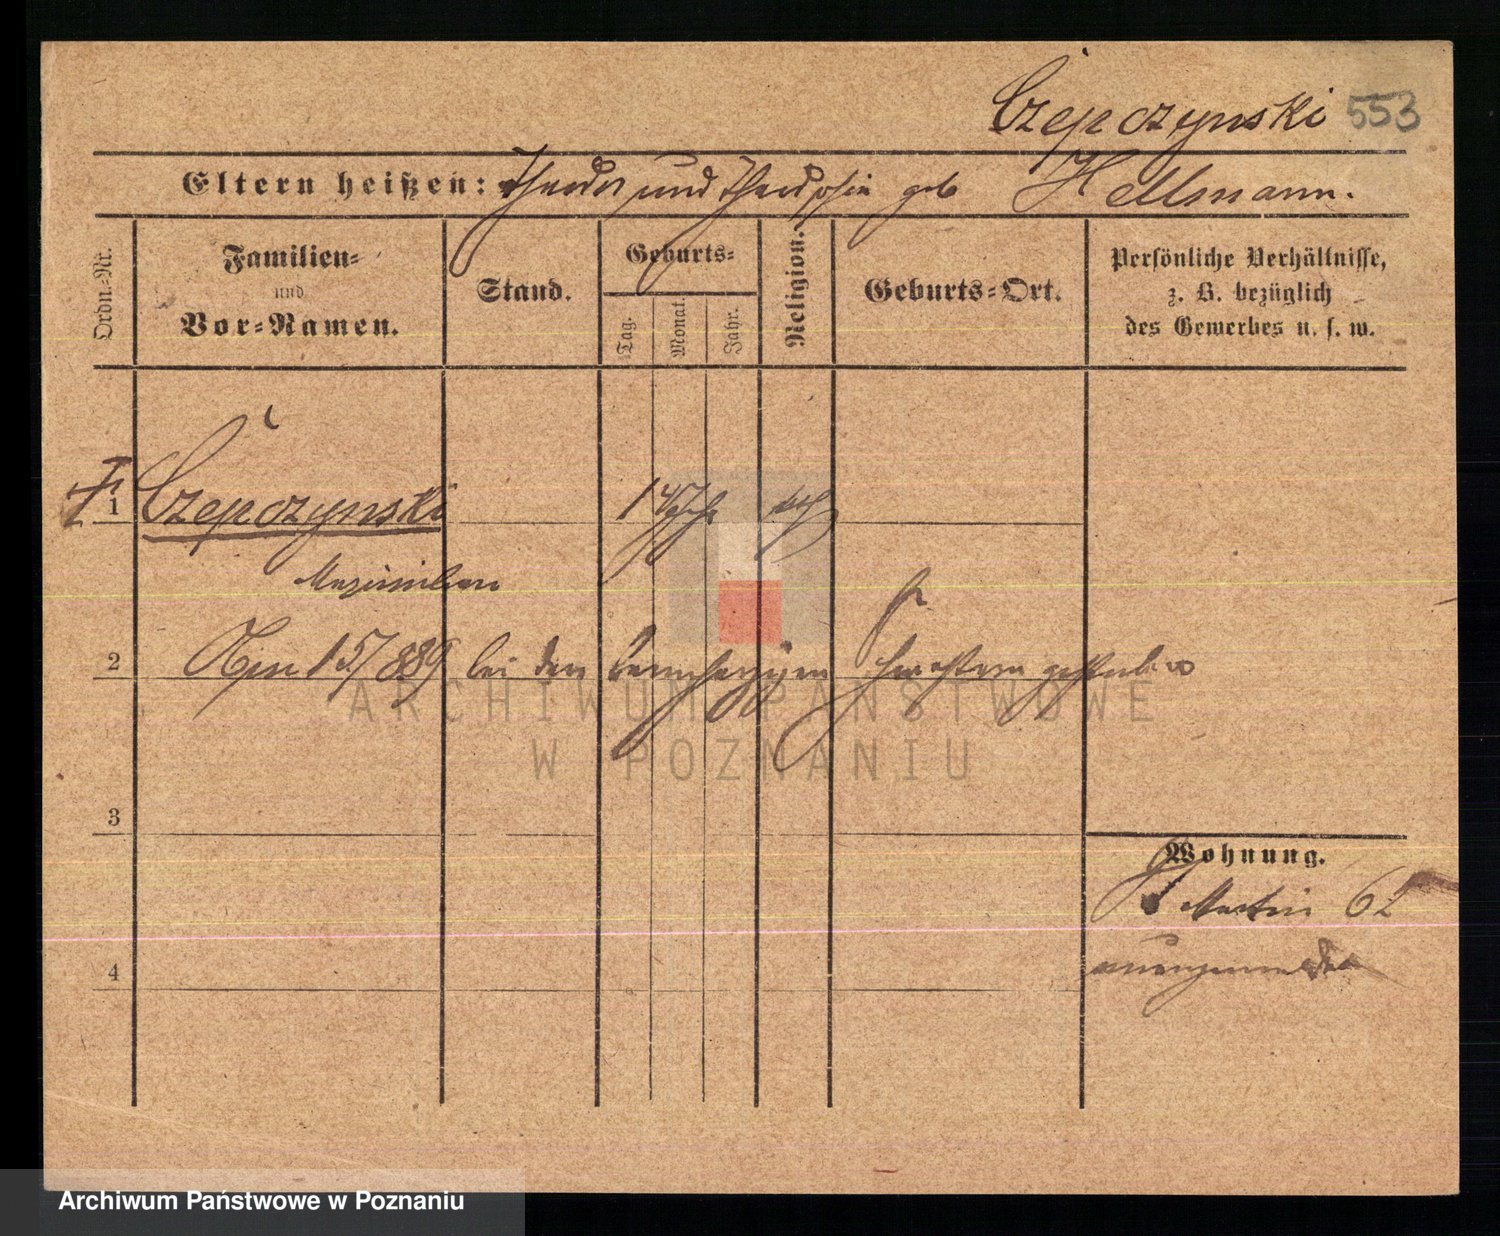 Czepczynski 553
Eltern heißen: Theodor und Theodosia geb Hellmann.
Ordn.-Nr.
Familien-
und
Vor-Namen.
Stand.
Geburts-
Tag.
Monat.
Jahr.
Religion.
Geburts-Ort.
Persönliche Verhältnisse,
z. B. bezüglich
des Gewerbes u. s. w.
1 Czepczynski kth
Maximilian
2 15/ 889 bei den barmherzigen Schwestern gestorben
3
Wohnung.
St Martin 62
4
ARCHIWUM PAŃSTWOWE
W POZNANIU
Archiwum Państwowe w Poznaniu